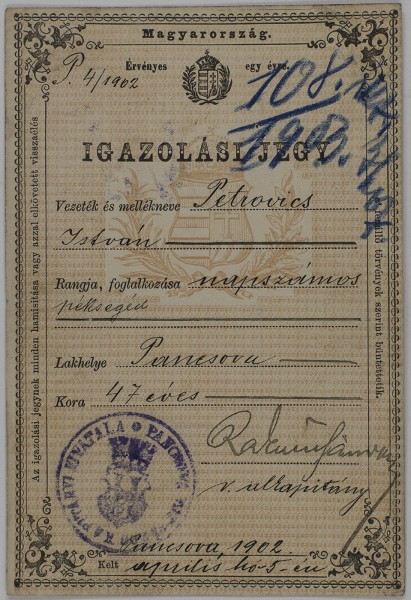 Magyarország.
Érvényes egy évre.
P. 4/1902
108.
1903.
IGAZOLÁSI JEGY
Vezeték és mellékneve Petrovics
István
Rangja, foglalkozása napszámos
péksegéd
Lakhelye Pancsova
Kora 47 éves
v. alkapitány
Pancsova, 1902.
Kelt április hó 5-én
Az igazolási jegynek minden hamisítása vagy azzal elkövetett visszaélés
fennálló törvények szerint büntettetik.
KAPITÁNYI HIVATALA